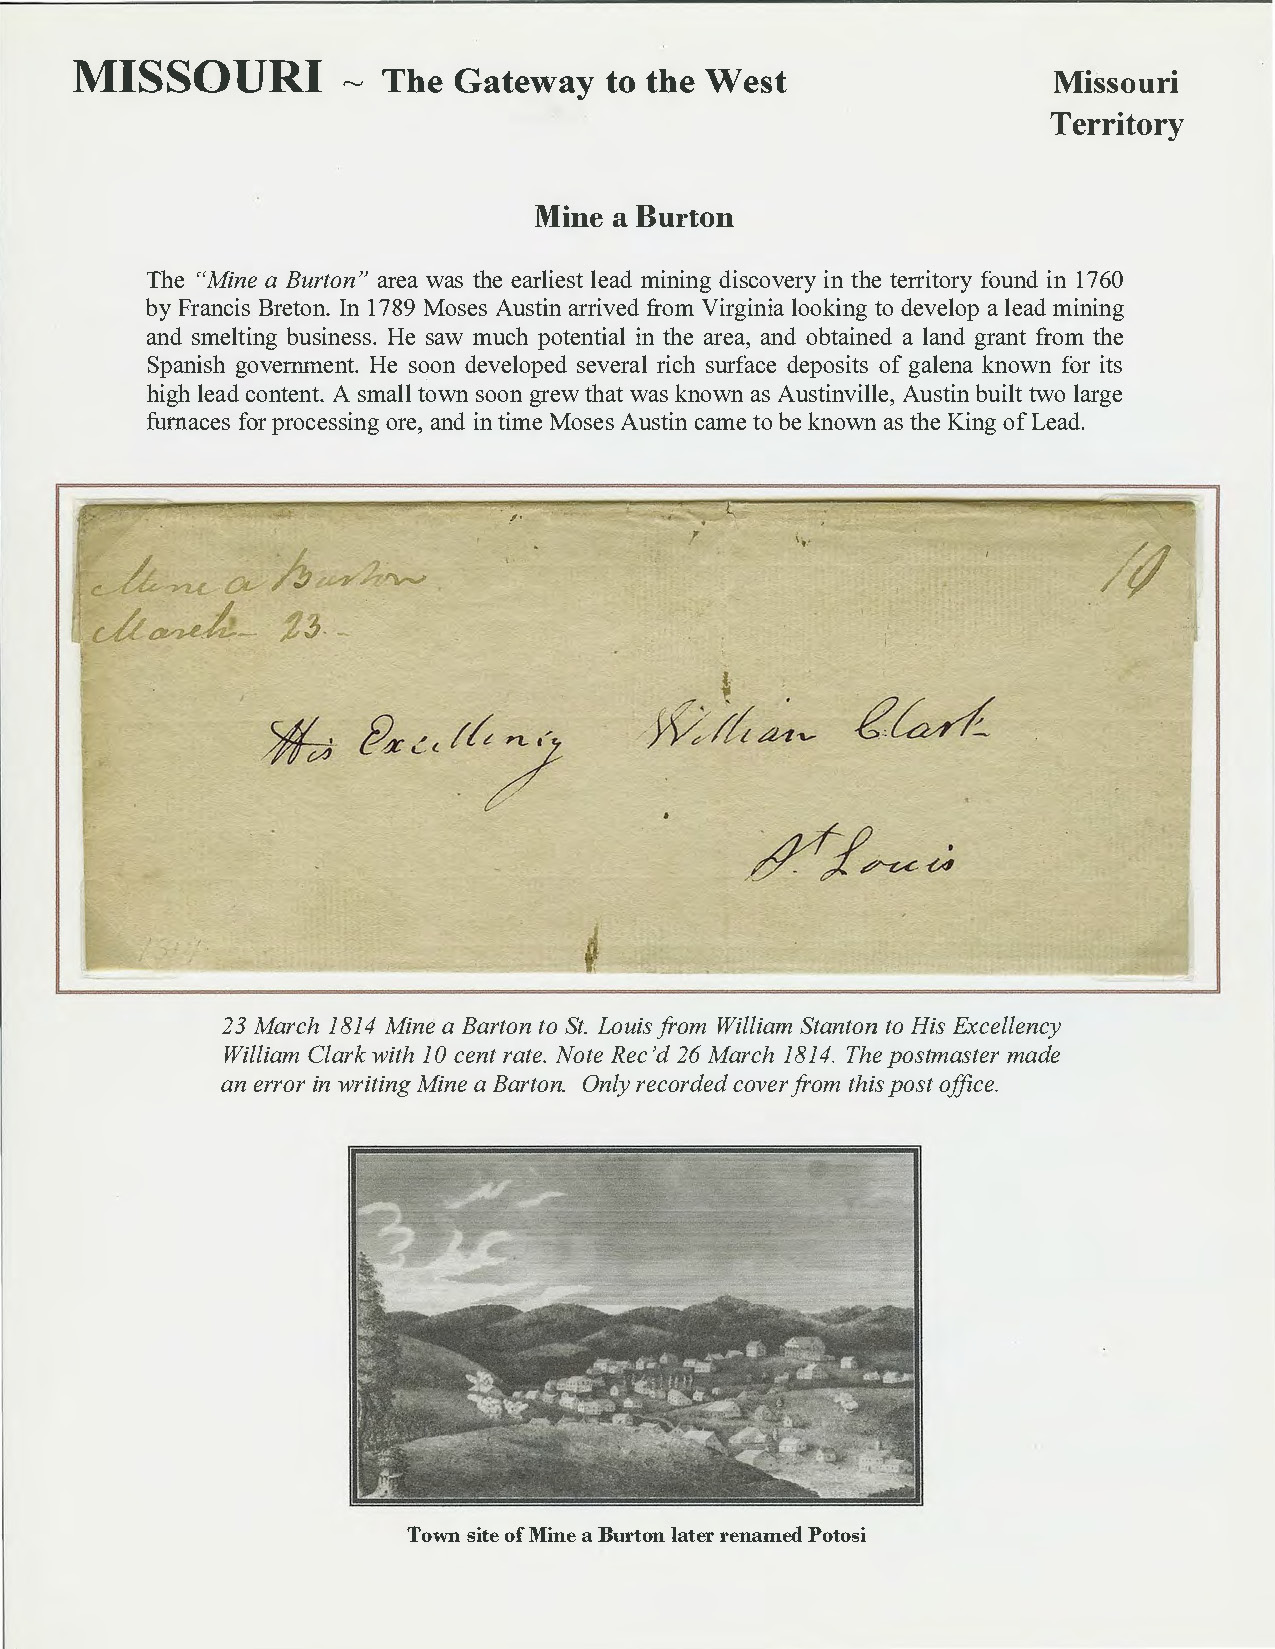 MISSOURI ~ The Gateway to the West
Missouri
Territory
Mine a Burton
The “Mine a Burton” area was the earliest lead mining discovery in the territory found in 1760
by Francis Breton. In 1789 Moses Austin arrived from Virginia looking to develop a lead mining
and smelting business. He saw much potential in the area, and obtained a land grant from the
Spanish government. He soon developed several rich surface deposits of galena known for its
high lead content. A small town soon grew that was known as Austinville, Austin built two large
furnaces for processing ore, and in time Moses Austin came to be known as the King of Lead.
Mine a Burton
March 23
10
His Excellency William Clark
St Louis
1814
23 March 1814 Mine a Barton to St. Louis from William Stanton to His Excellency
William Clark with 10 cent rate. Note Rec’d 26 March 1814. The postmaster made
an error in writing Mine a Barton. Only recorded cover from this post office.
Town site of Mine a Burton later renamed Potosi